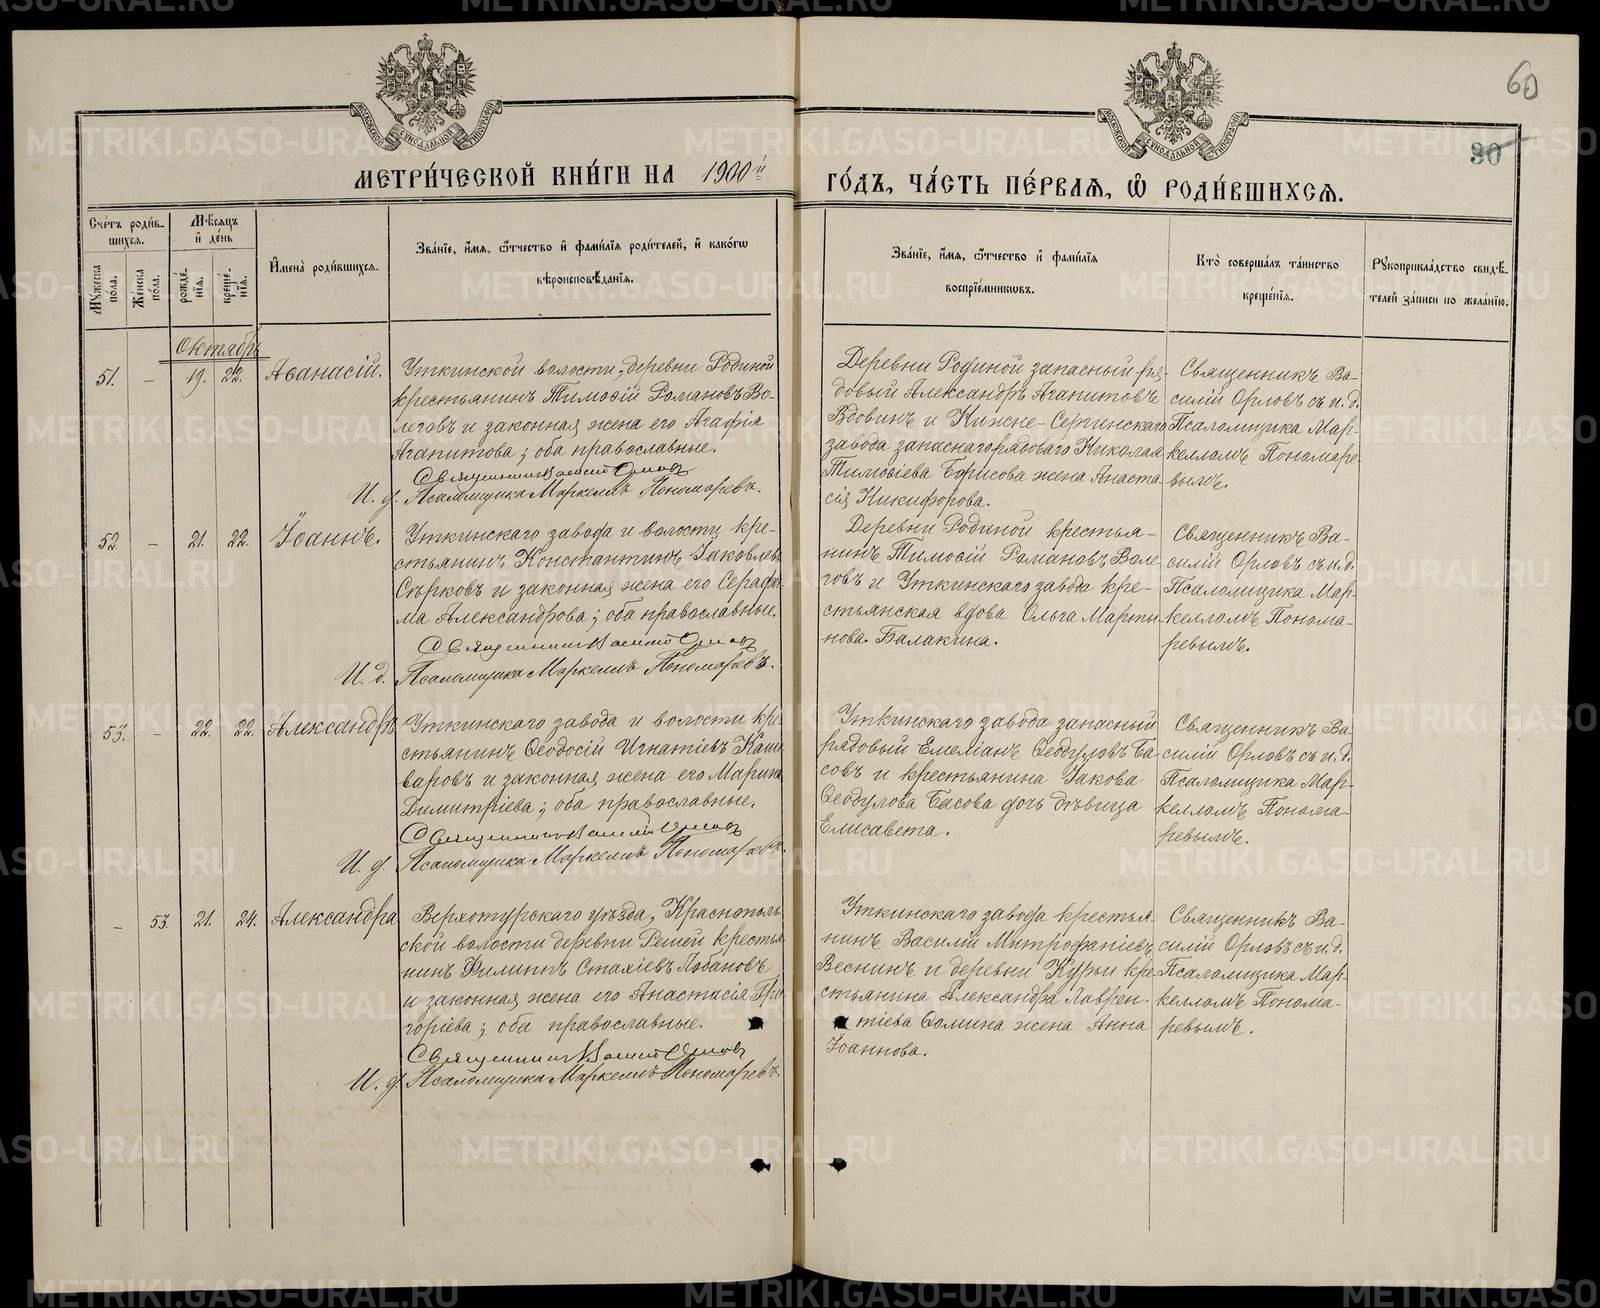 60
30
МОСКОВСКОЙ СУНОДАЛЬНОЙ ТИПОГРАФІИ
МОСКОВСКОЙ СУНОДАЛЬНОЙ ТИПОГРАФІИ
МЕТРИ́ЧЕСКОЙ КНИ́ГИ НА 1900й
ГО́ДЪ, ЧА́СТЬ ПЕ́РВАѦ, Ѡ҆ РОДИ́ВШИХСѦ.
Сче́тъ роди́в-
шихсѧ.
Мѣ́сѧцъ
и҆ де́нь
Мꙋ́жеска
по́ла.
Же́нска
по́ла.
рожде́-
нїѧ.
креще́-
нїѧ.
И҆мена̀ роди́вшихсѧ.
Зва́нїе, и҆́мѧ, ѻ҆́тчество и҆ фами́лїѧ роди́телей, и҆ како́гѡ
вѣроисповѣ́данїѧ.
Зва́нїе, и҆́мѧ, ѻ҆́тчество и҆ фами́лїѧ
воспрїе́мникѡвъ.
Кто̀ соверша́лъ та́инство
креще́нїѧ.
Рꙋкоприкла́дство свидѣ́-
телей за́писи по жела́нїю.
Октябрь
51.
–
19.
22.
Аѳанасій.
Уткинской волости, деревни Родиной
крестьянинъ Тимоѳій Романовъ Во-
леговъ и законная жена его Агафія
Агапитова; оба православные.
Священникъ Василій Орловъ
И. д. Псаломщика Маркеллъ Пономаревъ.
Деревни Родиной запасный ря-
довый Александръ Агапитовъ
Вдовинъ и Нижне-Сергинскаго
завода запаснаго рядоваго Николая
Тимоѳіева Борисова жена Анаста-
сія Никифорова.
Священникъ Ва-
силій Орловъ съ и. д.
Псаломщика Мар-
келломъ Пономаре-
вымъ.
52.
–
21.
22.
Іоаннъ.
Уткинскаго завода и волости кре-
стьянинъ Константинъ Іаковлевъ
Сѣрковъ и законная жена его Серафи-
ма Александрова; оба православные.
Священникъ Василій Орловъ
И. д. Псаломщика Маркеллъ Пономаревъ.
Деревни Родиной крестья-
нинъ Тимоѳій Романовъ Воле-
говъ и Уткинскаго завода кре-
стьянская вдова Ольга Марти-
нова Балакина.
Священникъ Ва-
силій Орловъ съ и. д.
Псаломщика Мар-
келломъ Понома-
ревымъ.
53.
–
22.
22.
Александръ
Уткинскаго завода и волости кре-
стьянинъ Ѳеодосій Игнатіевъ Каши-
варовъ и законная жена его Марина
Димитріева; оба православные.
Священникъ Василій Орловъ
И. д. Псаломщика Маркеллъ Пономаревъ.
Уткинскаго завода запасный
рядовый Емеліанъ Ѳеодуловъ Ба-
совъ и крестьянина Іакова
Ѳеодулова Басова дочь дѣвица
Елисавета.
Священникъ Ва-
силій Орловъ съ и. д.
Псаломщика Мар-
келломъ Понома-
ревымъ.
–
53
21.
24.
Александра
Верхотурскаго уѣзда, Краснополь-
ской волости деревни Решей крестья-
нинъ Филиппъ Стахіевъ Лобановъ
и законная жена его Анастасія Гри-
горіева; оба православные.
Священникъ Василій Орловъ
И. д. Псаломщика Маркеллъ Пономаревъ.
Уткинскаго завода крестья-
нинъ Василій Митрофаніевъ
Веснинъ и деревни Курьи кре-
стьянина Александра Лаврен-
тіева Ѳомина жена Анна
Іоаннова.
Священникъ Ва-
силій Орловъ съ и. д.
Псаломщика Мар-
келломъ Понома-
ревымъ.
METRIKI.GASO-URAL.RU